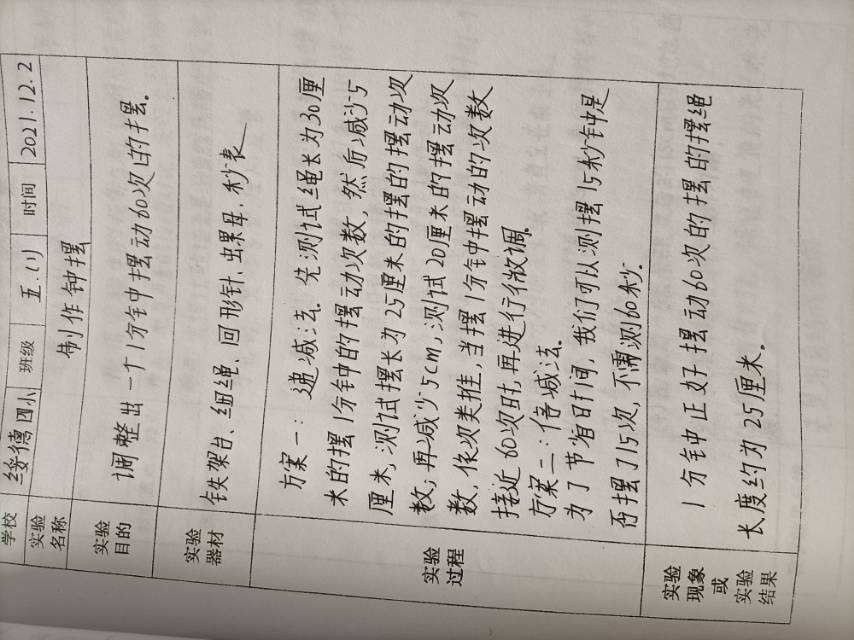 学校 绥德四小 班级 五.(1) 时间 2021.12.2
实验名称 制作钟摆
实验目的 调整出一个1分钟中摆动60次的钟摆。
实验器材 铁架台、细绳、回形针、螺母、秒表
实验过程
方案一：递减法。先测试绳长为30厘
米的摆1分钟的摆动次数，然后减少5
厘米，测试摆长为25厘米的摆的摆动次
数；再减少5cm，测试20厘米的摆动次
数，依次类推，当摆1分钟摆动的次数
接近60次时，再进行微调。
方案二：倍减法。
为了节省时间，我们可以测摆15秒钟是
否摆了15次，不需测60秒。
实验现象或实验结果
1分钟正好摆动60次的摆的摆绳
长度约为25厘米。